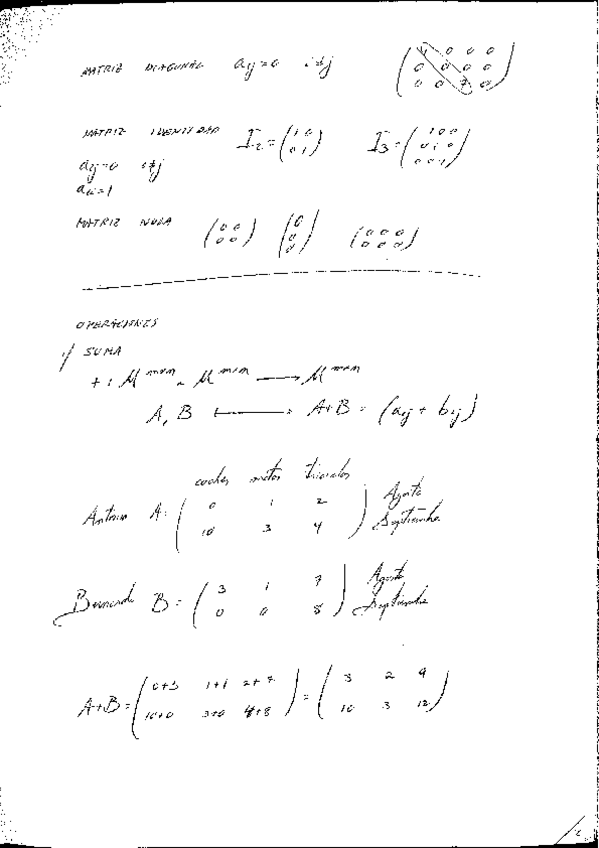 MATRIZ DIAGONAL aij=0 i≠j ( 0 0 0
0 0 0 0
0 0 7 0 )
MATRIZ IDENTIDAD I2=( 1 0
0 1 ) I3=( 1 0 0
0 1 0
0 0 1 )
aij=0 i≠j
aii=1
MATRIZ NULA ( 0 0
0 0 ) ( 0
0
0 ) ( 0 0 0
0 0 0 )
OPERACIONES
1/ SUMA
+ : M mxn x M mxn → M mxn
A, B ↦ A+B = (aij + bij)
coches motos triciclos
Antonio A= ( 0 1 2 Agosto
10 3 4 ) Septiembre
Bernardo B = ( 3 1 7 Agosto
0 0 8 ) Septiembre
A+B = ( 0+3 1+1 2+7
10+0 3+0 4+8 ) = ( 3 2 9
10 3 12 )